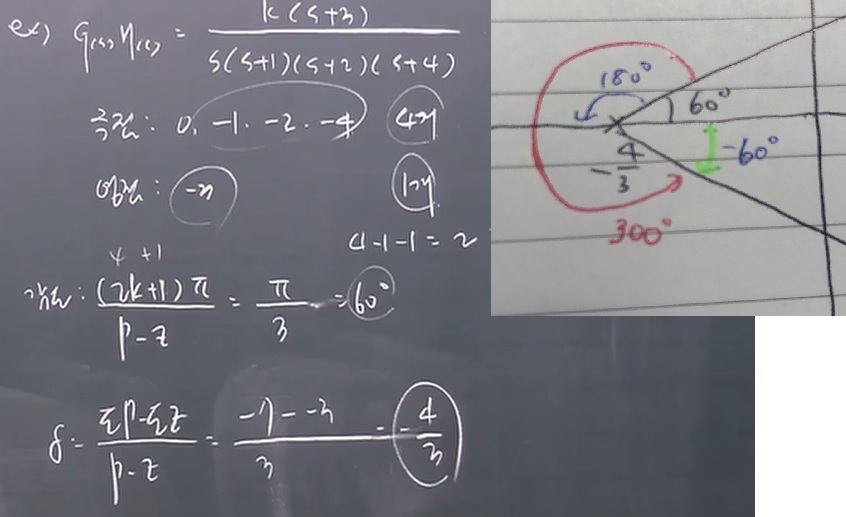 ex) G(s)H(s) = K(s+3) / s(s+1)(s+2)(s+4)
극점: 0, -1, -2, -4 4개
영점: -3 1개
4-1-1=2
+1
각도: (2k+1)π / p-z = π/3 = 60°
δ = Σp-Σz / p-z = -7--3 / 3 = -4/3
180°
60°
-60°
-4/3
300°